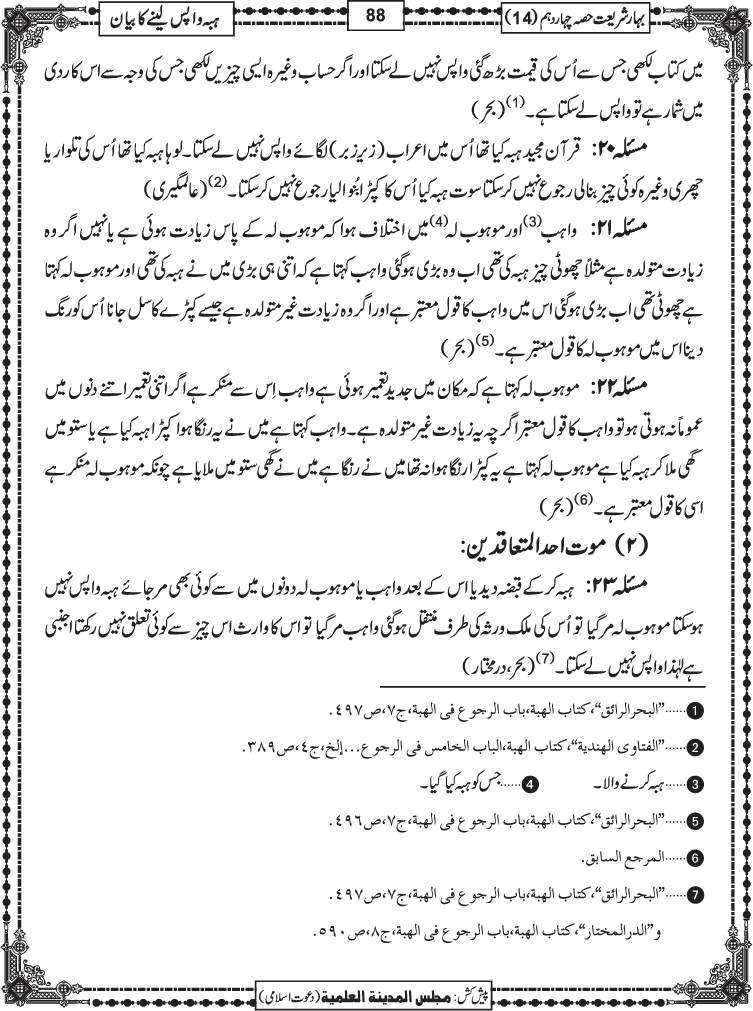 بہارِ شریعت حصہ چہاردہم (14)
88
ہبہ واپس لینے کا بیان
میں کتاب لکھی جس سے اُس کی قیمت بڑھ گئی واپس نہیں لے سکتا اور اگر حساب وغیرہ ایسی چیزیں لکھی جس کی وجہ سے اس کا ردی
میں شمار ہے تو واپس لے سکتا ہے۔(1) (بحر)
مسئلہ ۲۰: قرآن مجید ہبہ کیا تھا اُس میں اعراب (زیر زبر) لگائے واپس نہیں لے سکتا۔ لوہا ہبہ کیا تھا اُس کی تلوار یا
چھری وغیرہ کوئی چیز بنالی رجوع نہیں کر سکتا سوت ہبہ کیا اُس کا کپڑا بُنوا لیا رجوع نہیں کر سکتا۔(2) (عالمگیری)
مسئلہ ۲۱: واہب(3) اور موہوب لہ(4) میں اختلاف ہوا کہ موہوب لہ کے پاس زیادت ہوئی ہے یا نہیں اگر وہ
زیادت متولدہ ہے مثلاً چھوٹی چیز ہبہ کی تھی اب وہ بڑی ہوگئی واہب کہتا ہے کہ اتنی ہی بڑی میں نے ہبہ کی تھی اور موہوب لہ کہتا
ہے چھوٹی تھی اب بڑی ہوگئی اس میں واہب کا قول معتبر ہے اور اگر وہ زیادت غیر متولدہ ہے جیسے کپڑے کا سل جانا اُس کو رنگ
دینا اس میں موہوب لہ کا قول معتبر ہے۔(5) (بحر)
مسئلہ ۲۲: موہوب لہ کہتا ہے کہ مکان میں جدید تعمیر ہوئی ہے واہب اِس سے منکر ہے اگر اتنی تعمیر اتنے دنوں میں
عموماً نہ ہوتی ہو تو واہب کا قول معتبر اگرچہ یہ زیادت غیر متولدہ ہے۔ واہب کہتا ہے میں نے یہ رنگا ہوا کپڑا ہبہ کیا ہے یا ستو میں
گھی ملا کر ہبہ کیا ہے موہوب لہ کہتا ہے یہ کپڑا رنگا ہوا نہ تھا میں نے رنگا ہے میں نے گھی ستو میں ملایا ہے چونکہ موہوب لہ منکر ہے
اسی کا قول معتبر ہے۔(6) (بحر)
(۲) موت احد المتعاقدین:
مسئلہ ۲۳: ہبہ کرکے قبضہ دیدیا اس کے بعد واہب یا موہوب لہ دونوں میں سے کوئی بھی مر جائے ہبہ واپس نہیں
ہوسکتا موہوب لہ مر گیا تو اُس کی ملک ورثہ کی طرف منتقل ہوگئی واہب مر گیا تو اس کا وارث اس چیز سے کوئی تعلق نہیں رکھتا اجنبی
ہے لہٰذا واپس نہیں لے سکتا۔(7) (بحر، درمختار)
1 ......"البحر الرائق"، کتاب الھبة، باب الرجوع فی الھبة، ج٧، ص٤٩٧.
2 ......"الفتاوی الھندیة"، کتاب الھبة، الباب الخامس فی الرجوع...إلخ، ج٤، ص٣٨٩.
3 ......ہبہ کرنے والا۔ 4 ......جس کو ہبہ کیا گیا۔
5 ......"البحر الرائق"، کتاب الھبة، باب الرجوع فی الھبة، ج٧، ص٤٩٦.
6 ......المرجع السابق.
7 ......"البحر الرائق"، کتاب الھبة، باب الرجوع فی الھبة، ج٧، ص٤٩٧.
و"الدر المختار"، کتاب الھبة، باب الرجوع فی الھبة، ج٨، ص٥٩٠.
پیش کش: مجلس المدینة العلمیة (دعوت اسلامی)